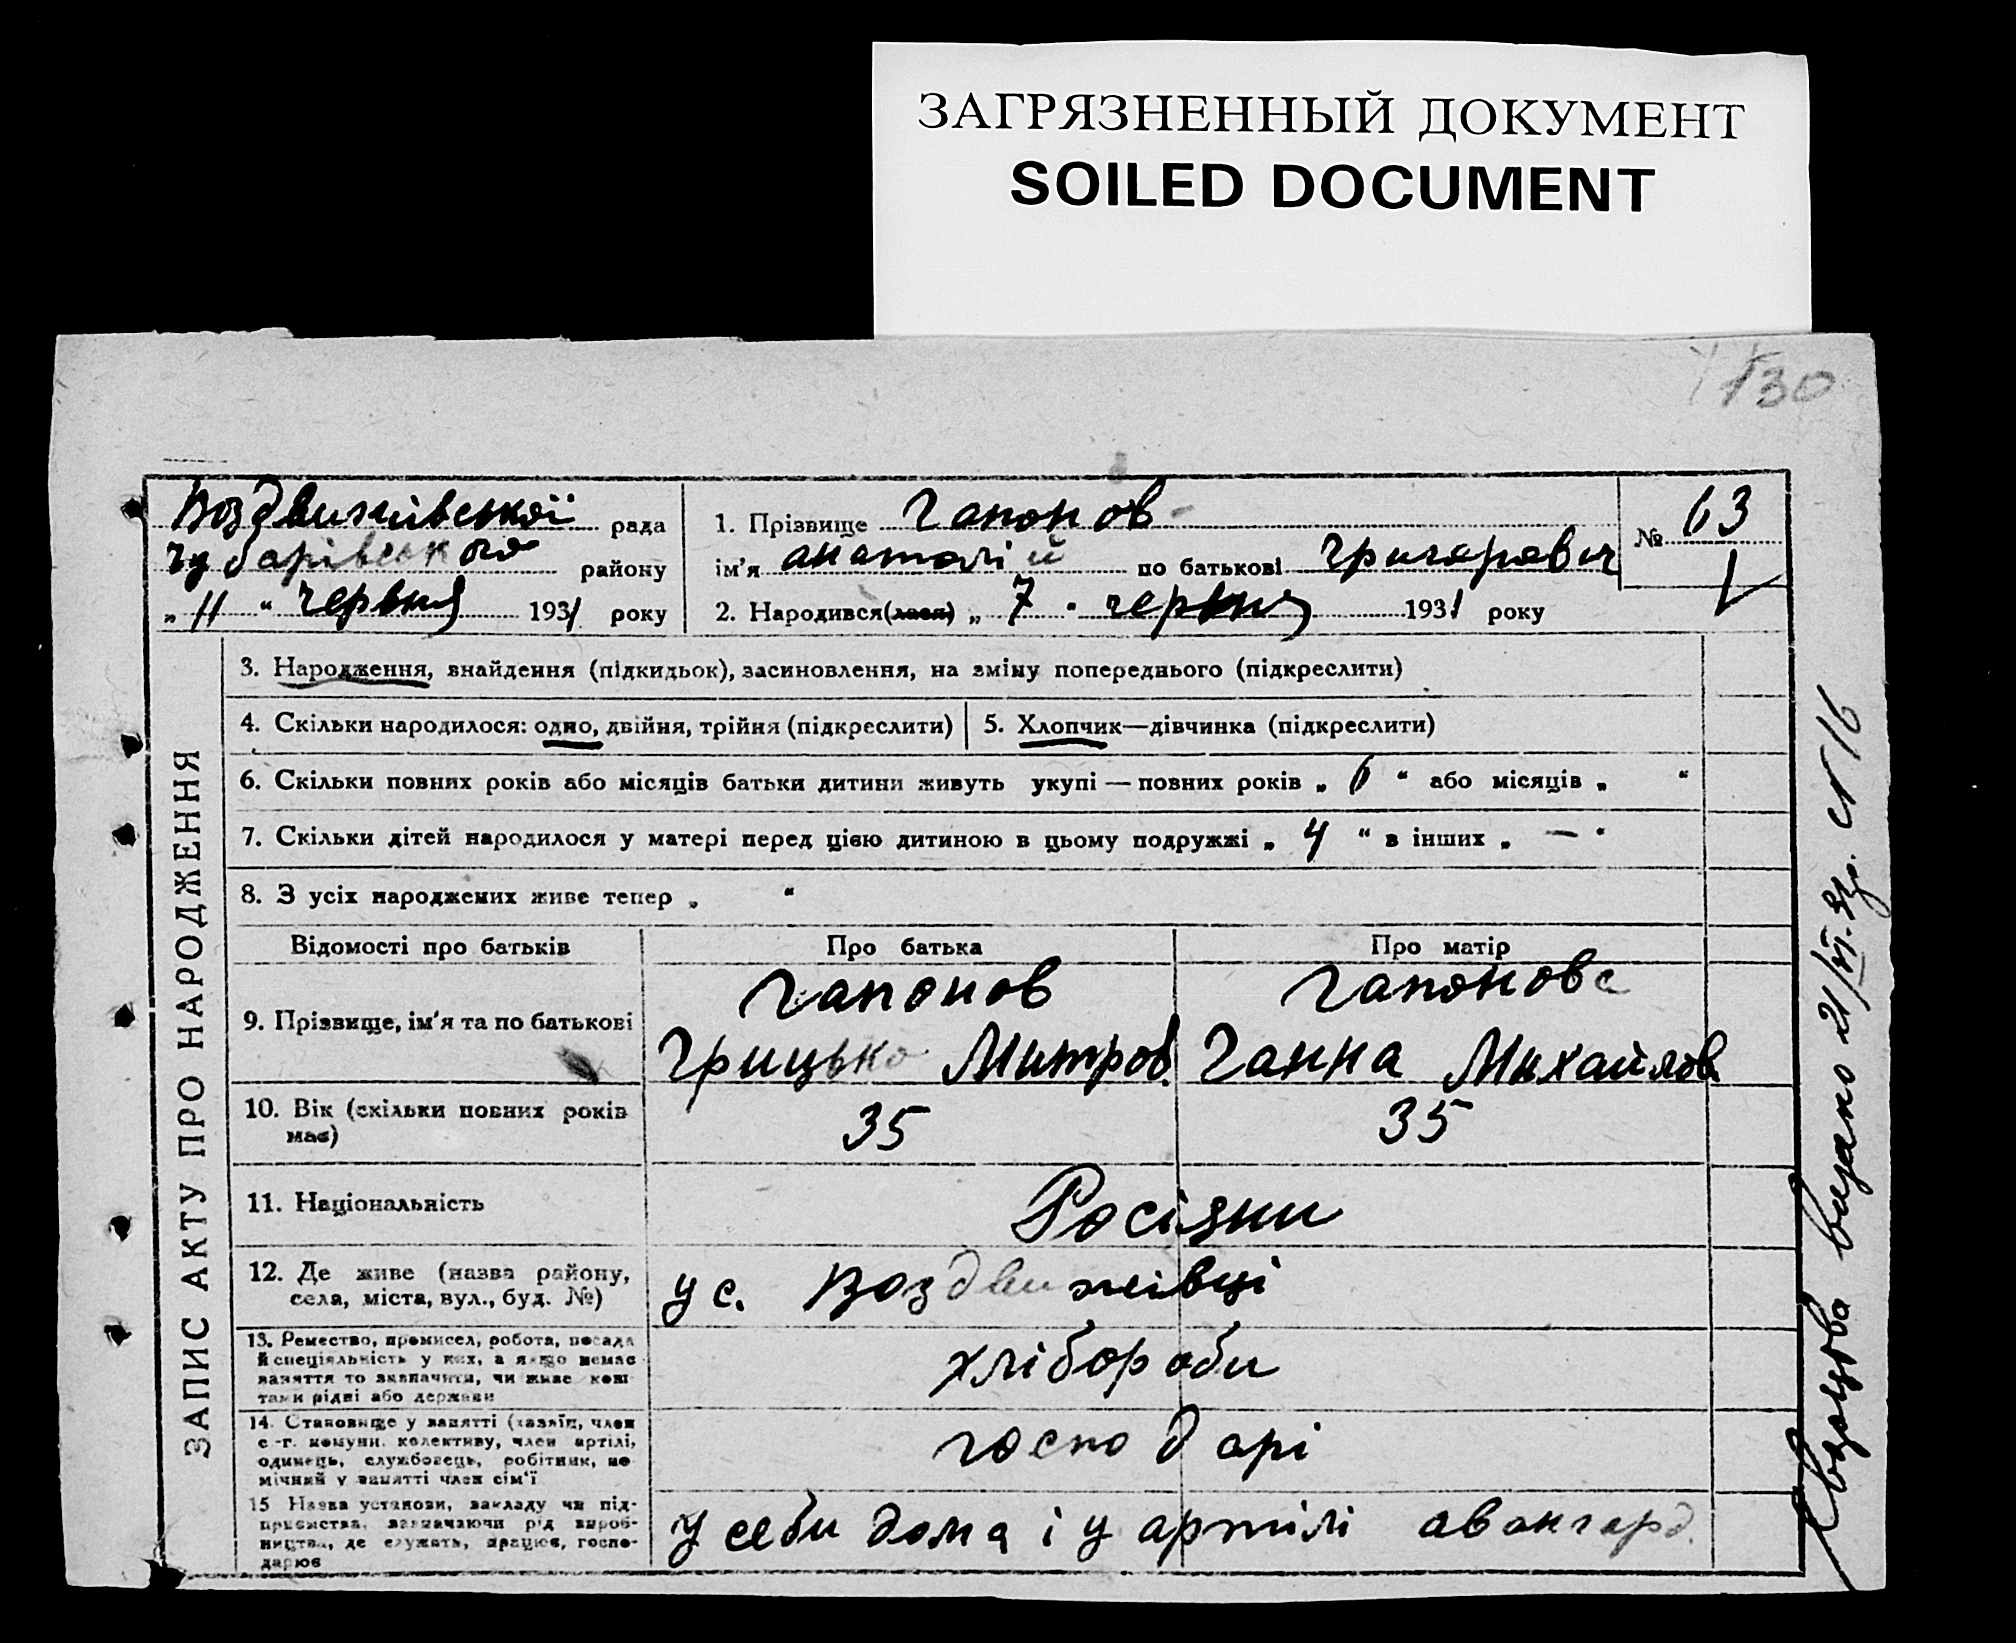 ЗАГРЯЗНЕННЫЙ ДОКУМЕНТ
SOILED DOCUMENT
130
Воздвижівської рада
Чубарівського району
„ 11 “ червня 1931 року
1. Прізвище Гапонов
ім'я Анатолій по батькові Григорович
2. Народився(лася) „ 7 “ червня 1931 року
№ 63
ЗАПИС АКТУ ПРО НАРОДЖЕННЯ
3. Народження, знайдення (підкидьок), засиновлення, на зміну попереднього (підкреслити)
4. Скільки народилося: одно, двійня, трійня (підкреслити)
5. Хлопчик—дівчинка (підкреслити)
6. Скільки повних років або місяців батьки дитини живуть укупі — повних років „ 6 “ або місяців „ “
7. Скільки дітей народилося у матері перед цією дитиною в цьому подружжі „ 4 “ в інших „ — “
8. З усіх народжених живе тепер „ “
Відомості про батьків
Про батька
Про матір
9. Прізвище, ім'я та по батькові
Гапонов
Грицько Митров.
Гапонова
Ганна Михайлов
10. Вік (скільки повних років має)
35
35
11. Національність
Росіяни
12. Де живе (назва району,
села, міста, вул., буд. №)
у с. Воздвижівці
13. Ремество, промисел, робота, посада
й спеціяльність у них, а якщо немає
заняття то зазначити, чи живе кош
тами рідні або держави
хлібороби
14. Становище у занятті (хазяїн, член
с.-г. комуни, колективу, член артілі,
одинець, службовець, робітник, по
мічний у занятті член сім'ї
господарі
15 Назва установи, закладу чи під-
приємства, зазначаючи рід вироб-
ництва, де служать, працює, госпо-
дарює
у себи дома і у артілі авангард.
видано 21/VI-31р. № 16